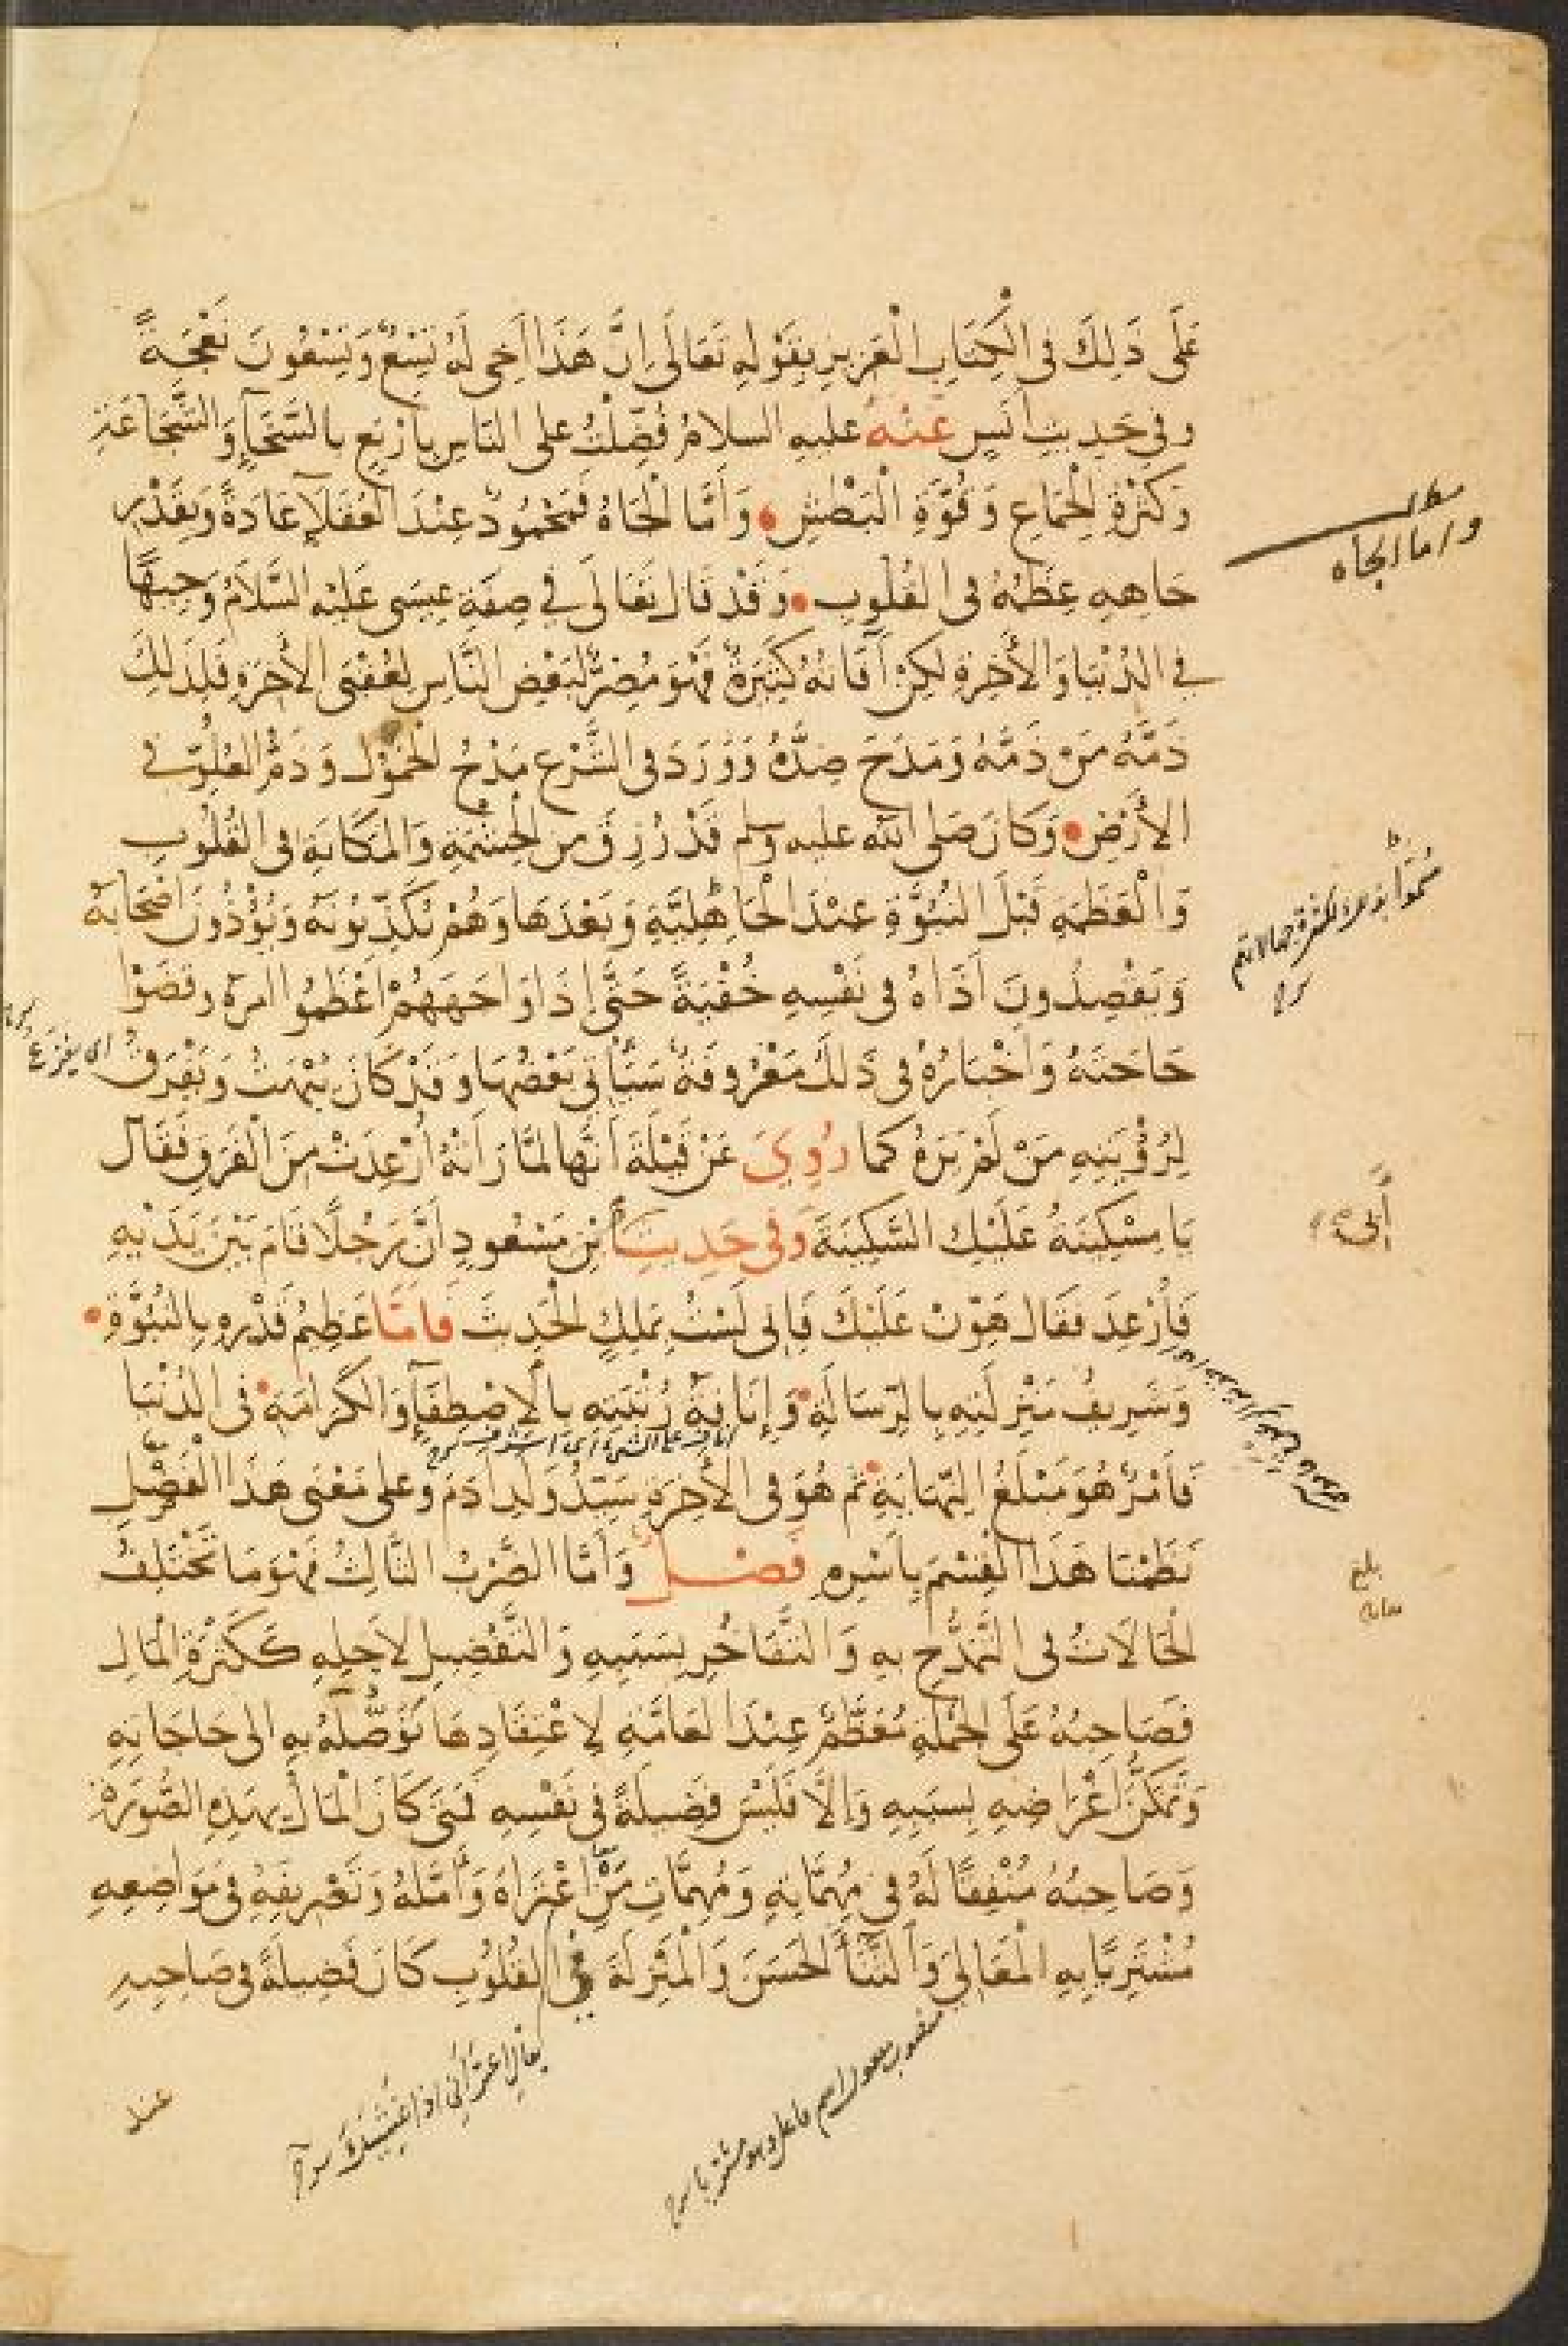 عَلَى ذَلِكَ فى الْكِتَابِ الْعَزِيزِ بِقَوْلِهِ تَعَالَى إِنَّ هَذَا أَخِى لَهُ تِسْعٌ وَتِسْعُونَ نَعْجَةً
وفى حَدِيثِ أَنَسٍ عَنْهُ عليهِ السلامُ فُضِّلْتُ على النَّاسِ بِأَرْبَعٍ بالسَّخَآءِ وَالشَّجَاعَةِ
وَكَثْرَةِ الْجِمَاعِ وَقُوَّةِ الْبَطْشِ وَأَمَّا الْجَاهُ فَمَحْمُودٌ عِنْدَ الْعُقَلَآءِ عَادَةً وَبِقَدْرِ
جَاهِهِ عِظَمُهُ فى الْقُلُوبِ وَقَدْ قَالَ تَعَالَى فِى صِفَةِ عِيسَى عَلَيْهِ السَّلَامُ وَجِيهًا
فِى الدُّنْيَا وَالْأَخِرَةِ لَكِنْ آفَاتُهُ كَثِيرَةٌ فَهُوَ مُضِرٌّ لِبَعْضِ النَّاسِ لِعُقْبَى الْأَخِرَةِ فَلِذَلِكَ
ذَمَّهُ مَنْ ذَمَّهُ وَمَدَحَ ضِدَّهُ وَوَرَدَ فى الشَّرْعِ مَدْحُ الْخُمُولِ وَذَمُّ الْعُلُوِّ فِى
الْأَرْضِ وَكَانَ صَلى الله عليه وسلم قَدْ رُزِقَ مِنَ الْحِشْمَةِ وَالْمَكَانَةِ فى الْقُلُوبِ
وَالْعَظَمَةِ قَبْلَ النُّبُوَّةِ عِنْدَ الْجَاهِلِيَّةِ وَبَعْدَهَا وَهُمْ يُكَذِّبُونَهُ وَيُؤْذُونَ أَصْحَابَهُ
وَيَقْصِدُونَ أَذَاهُ فى نَفْسِهِ خُفْيَةً حَتَّى إِذَا وَاجَهَهُمْ أَعْظَمُوا امره وقَضَوْا
حَاجَتَهُ وَأَخْبَارُهُ فى ذَلِكَ مَعْرُوفَةٌ سَيَأْتِى بَعْضُهَا وَقَدْ كَانَ يُبْهَتُ وَيَفْرَقُ
لِرُؤْيَتِهِ مَنْ لَمْ يَرَهُ كَمَا رُوِىَ عَنْ قَيْلَةَ أَنَّهَا لَمَّا رَأَتْهُ أُرْعِدَتْ مِنَ الْفَرَقِ فَقَالَ
يَا مِسْكِينَةُ عَلَيْكِ السَّكِينَةَ وَفى حَدِيثِ ابْنِ مَسْعُودٍ أَنَّ رَجُلًا قَامَ بَيْنَ يَدَيْهِ
فَأُرْعِدَ فقَالَ هَوِّنْ عَلَيْكَ فَإِنِى لَسْتُ بِمَلِكٍ الْحَدِيثَ فَامَّا عَظِيمُ قَدْرِهِ بِالنُّبُوَّةِ
وَشَرِيفُ مَنْزِلَتِهِ بِالرِّسَالَةِ وَإِنَافَةُ رُتْبَتِهِ بِالْاصْطِفَآءِ وَالْكَرَامَةِ فى الدُّنْيَا
اناف على الشئ اى اشرف
فَأَمْرٌ هُوَ مَبْلَغُ النِّهَايَةِ ثم هُوَ فى الْأَخِرَةِ سَيِّدُ وَلَدِ آدَمَ وعلى مَعْنَى هَذَا الْفَصْلِ
نَظَمْنَا هَذَا الْقِسْمَ بِأَسْرِهِ فَصْلٌ وَأَمَّا الضَّرْبُ الثَّالِثُ فَهُوَ مَا تَخْتَلِفُ
الْحَالَاتُ فى التَّمَدُّحِ بِهِ وَالتَّفَاخُرِ بِسَبَبِهِ وَالتَّفْضِيلِ لأَجْلِهِ كَكَثْرَةِ الْمَالِ
فَصَاحِبُهُ عَلَى الْجُمْلَةِ مُعَظَّمٌ عِنْدَ الْعَامَّةِ لِاعْتِقَادِهَا تَوَصُّلَهُ بِهِ الى حَاجَاتِهِ
وَتَمَكُّنَ أَغْرَاضِهِ بِسَبَبِهِ وَإِلَّا فَلَيْسَ فَضِيلَةً فى نَفْسِهِ فَمَتَى كَانَ الْمَالُ بِهَذِهِ الصُّورَةِ
وَصَاحِبُهُ مُنْفِقًا لَهُ فى مُهِمَّاتِهِ وَمُهِمَّاتِ مَنِ اعْتَرَاهُ وَأَمَّلَهُ وَتَصْرِيفِهِ فى مَوَاضِعِهِ
مُشْتَرِيًا بِهِ الْمَعَالِىَ وَالثَّنَآءَ الْحَسَنَ وَالْمَنْزِلَةَ فِى الْقُلُوبِ كَانَ فَضِيلَةً فى صَاحِبِهِ
واما الجاه
اى يفزع
بلغ
يقال اعترانى اذا غشيه
منصوب معمول اسم فاعل وهو مشتريا
عند